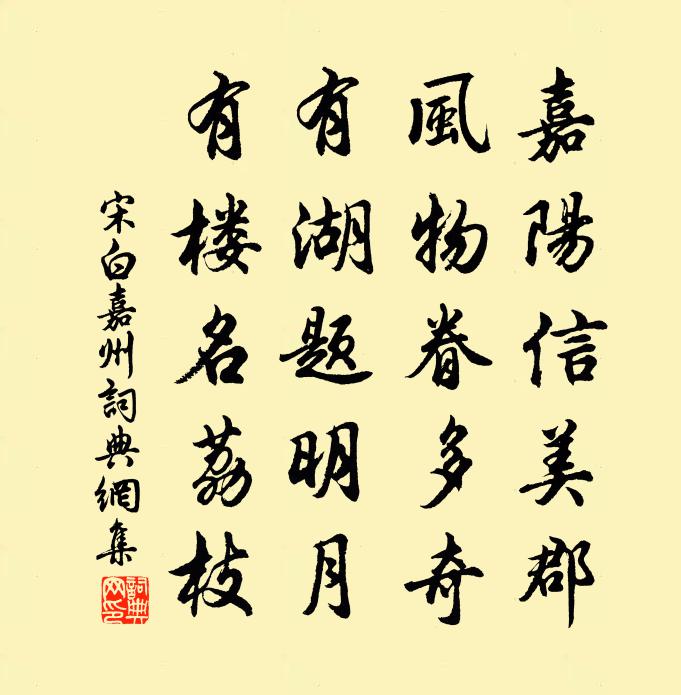 嘉陽信美郡
風物眷多奇
有湖题明月
有楼名荔枝
宋白嘉州詞典網集
詞典網印